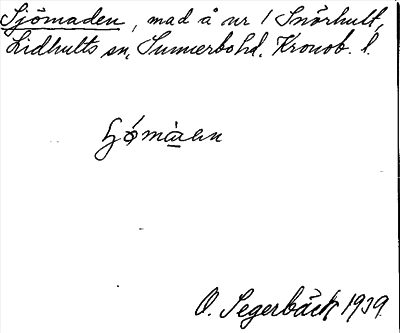 Sjömaden, mad å nr 1 Snörhult,
Lidhults sn, Sunnerbo hd. Kronob. l.
O. Segerbäck 1939.